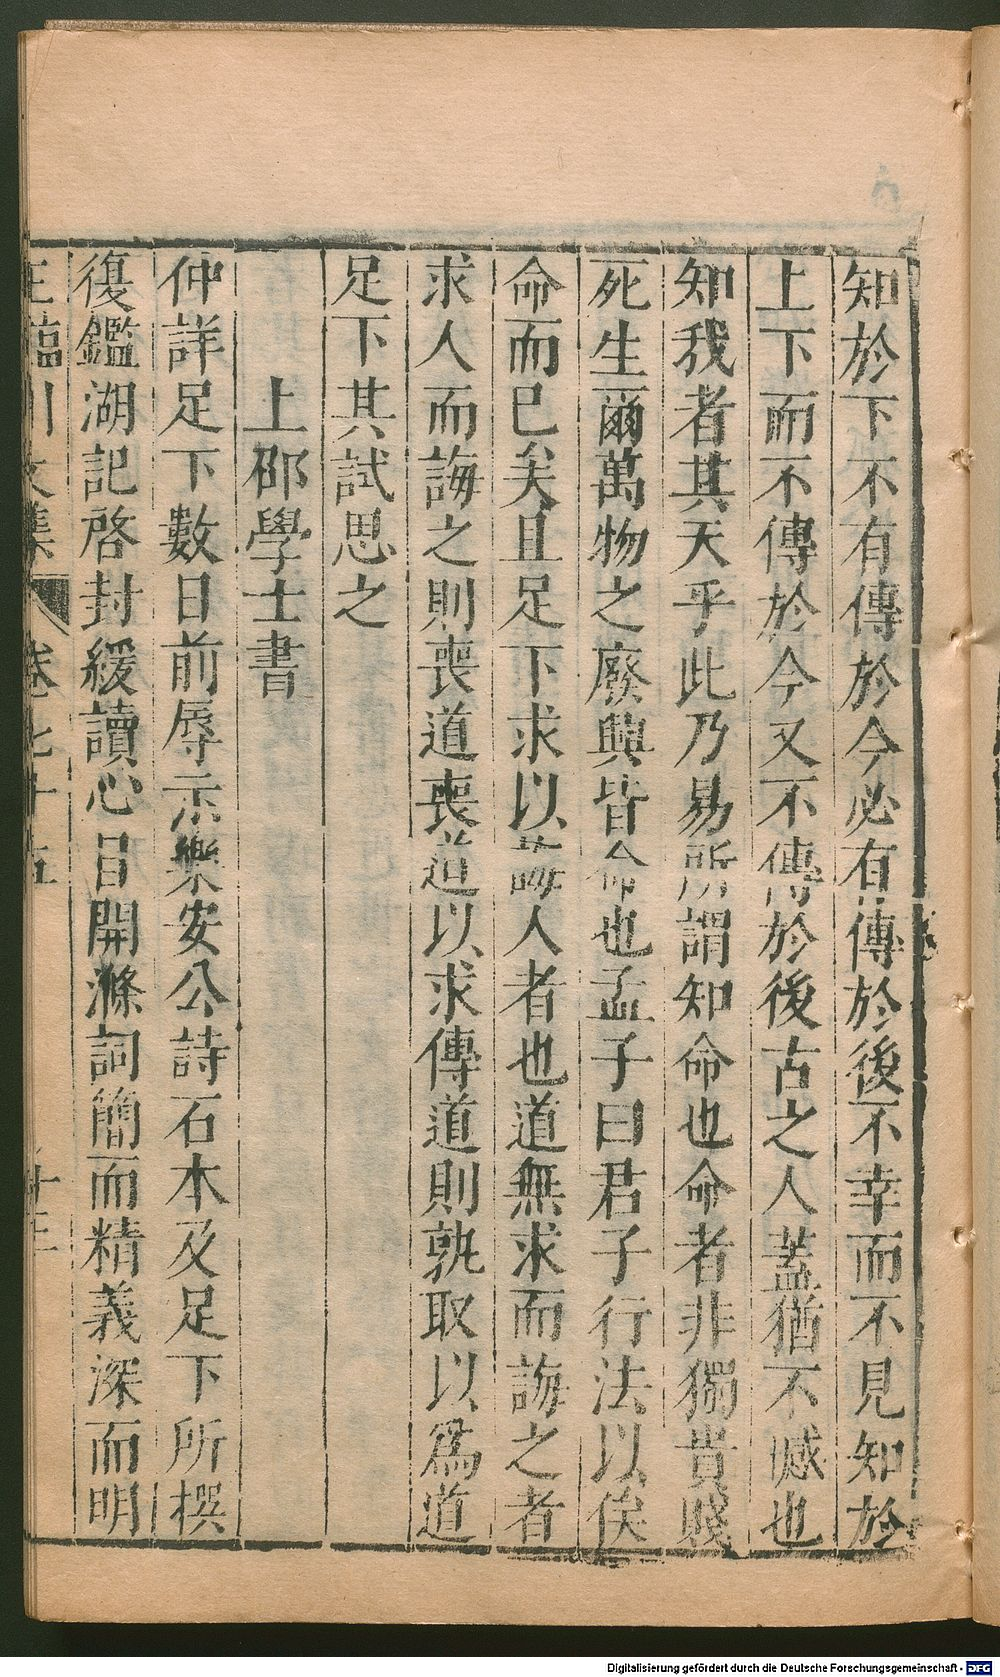 知於下不有傳於今必有傳於後不幸而不見知於
上下而不傳於今又不傳於後古之人蓋猶不憾也
知我者其天乎此乃易所謂知命也命者非獨貴賤
死生爾萬物之廢興皆命也孟子曰君子行法以俟
命而已矣且足下求以誨人者也道無求而誨之者
求人而誨之則喪道喪道以求傳道則孰取以爲道
足下其試思之
上邵學士書
仲詳足下數日前辱示樂安公詩石本及足下所撰
復鑑湖記啓封緩讀心目開滌詞簡而精義深而明
王臨川文集 卷七十五 十三
Digitalisierung gefördert durch die Deutsche Forschungsgemeinschaft - DFG